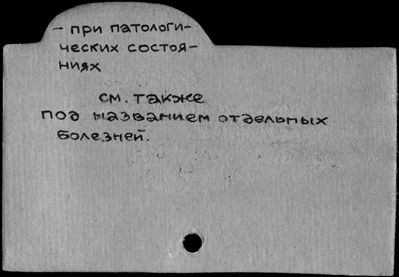 – при патологи-
ческих состоя-
ниях
см. также
под названием отдельных
болезней.